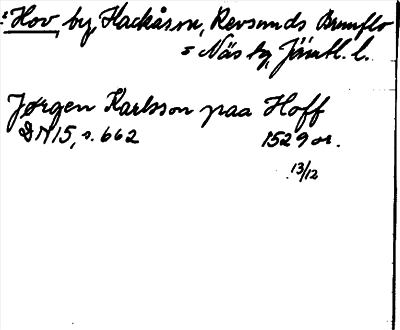 : Hov by, Hackåson, Revsunds Brunflo
= Näs by, Jämtl. l.
Jørgen Karlsson paa Hoff
DN 15, s. 662 1529 or.
13/12